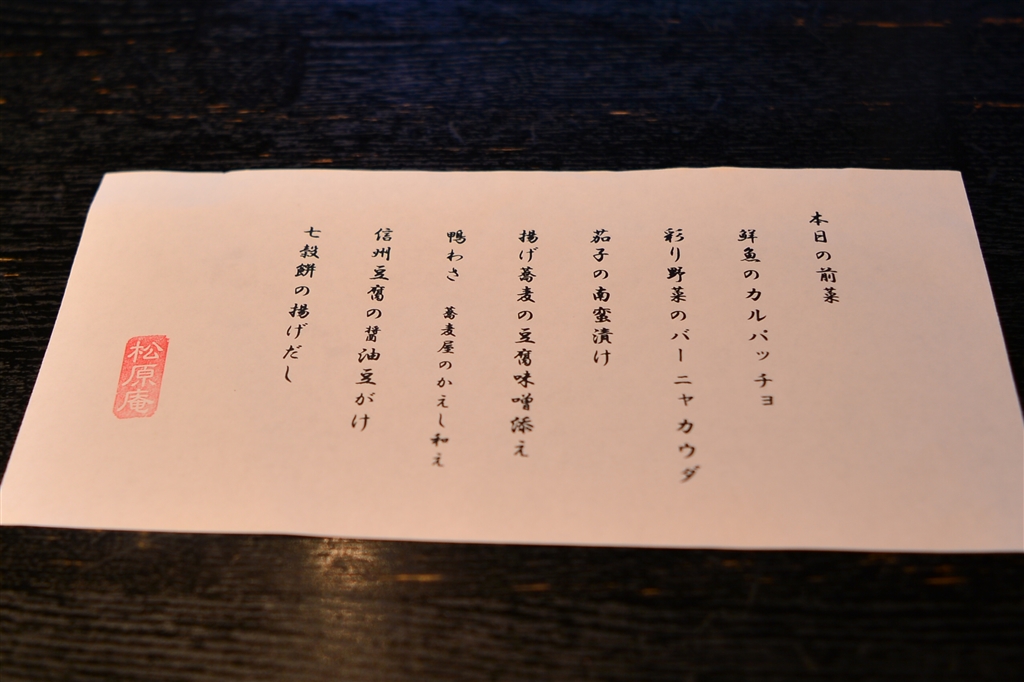 本日の前菜
鮮魚のカルパッチョ
彩り野菜のバーニャカウダ
茄子の南蛮漬け
揚げ蕎麦の豆腐味噌添え
鴨わさ 蕎麦屋のかえし和え
信州豆腐の醤油豆がけ
七穀餅の揚げだし
松原庵